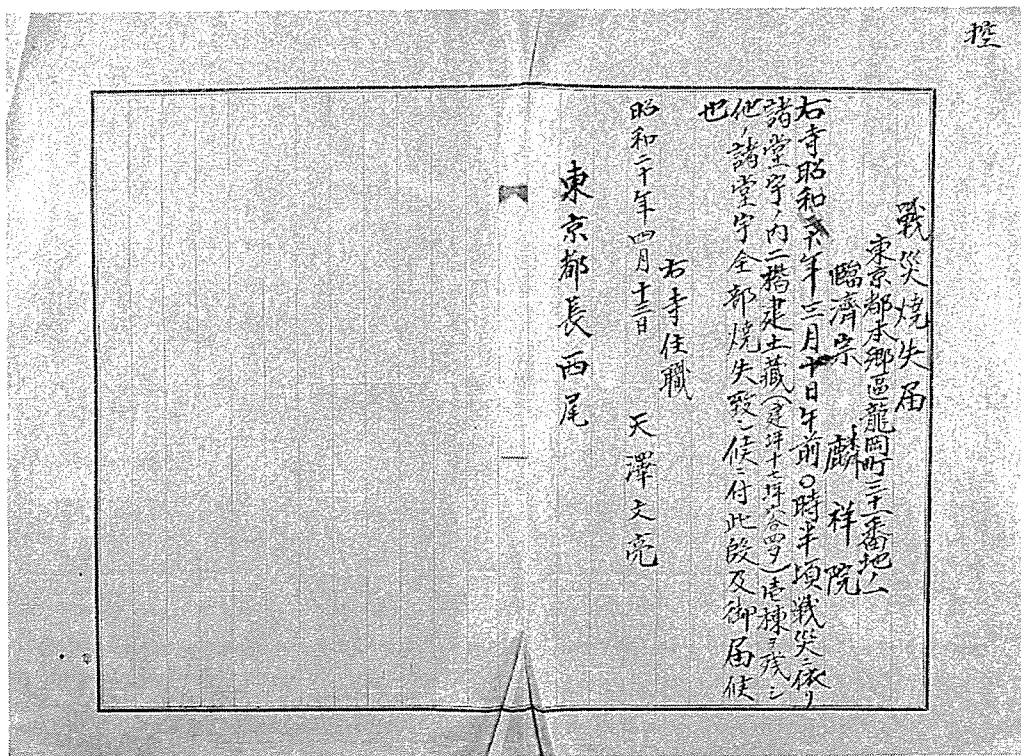 控
戰災燒失届
東京都本郷區龍岡町三十一番地ノ一
臨濟宗 麟祥院
右寺昭和二十年三月十日午前〇時半頃戦災ニ依リ
諸堂宇ノ内二楷建土藏(建坪十七坪八合四夕)壱棟ヲ残シ
他ノ諸堂宇全部焼失致シ候ニ付此段及御届候
也
右寺住職
昭和二十年四月十三日 天澤文亮
東京都長西尾